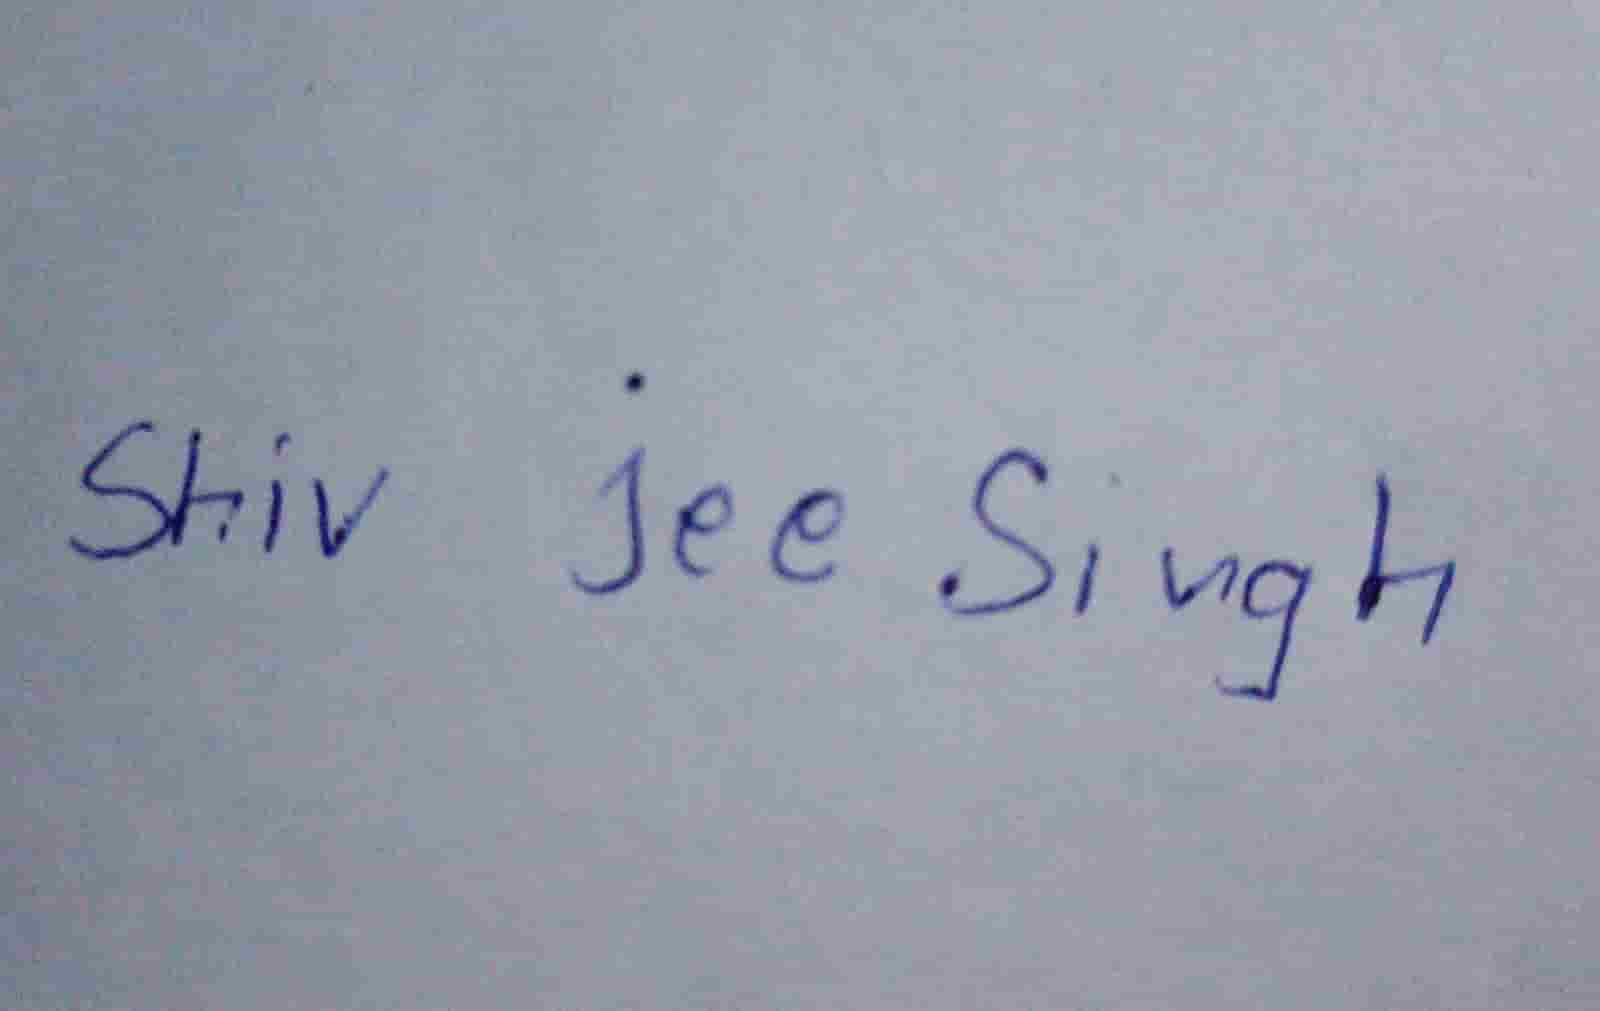 Shiv jee Singh